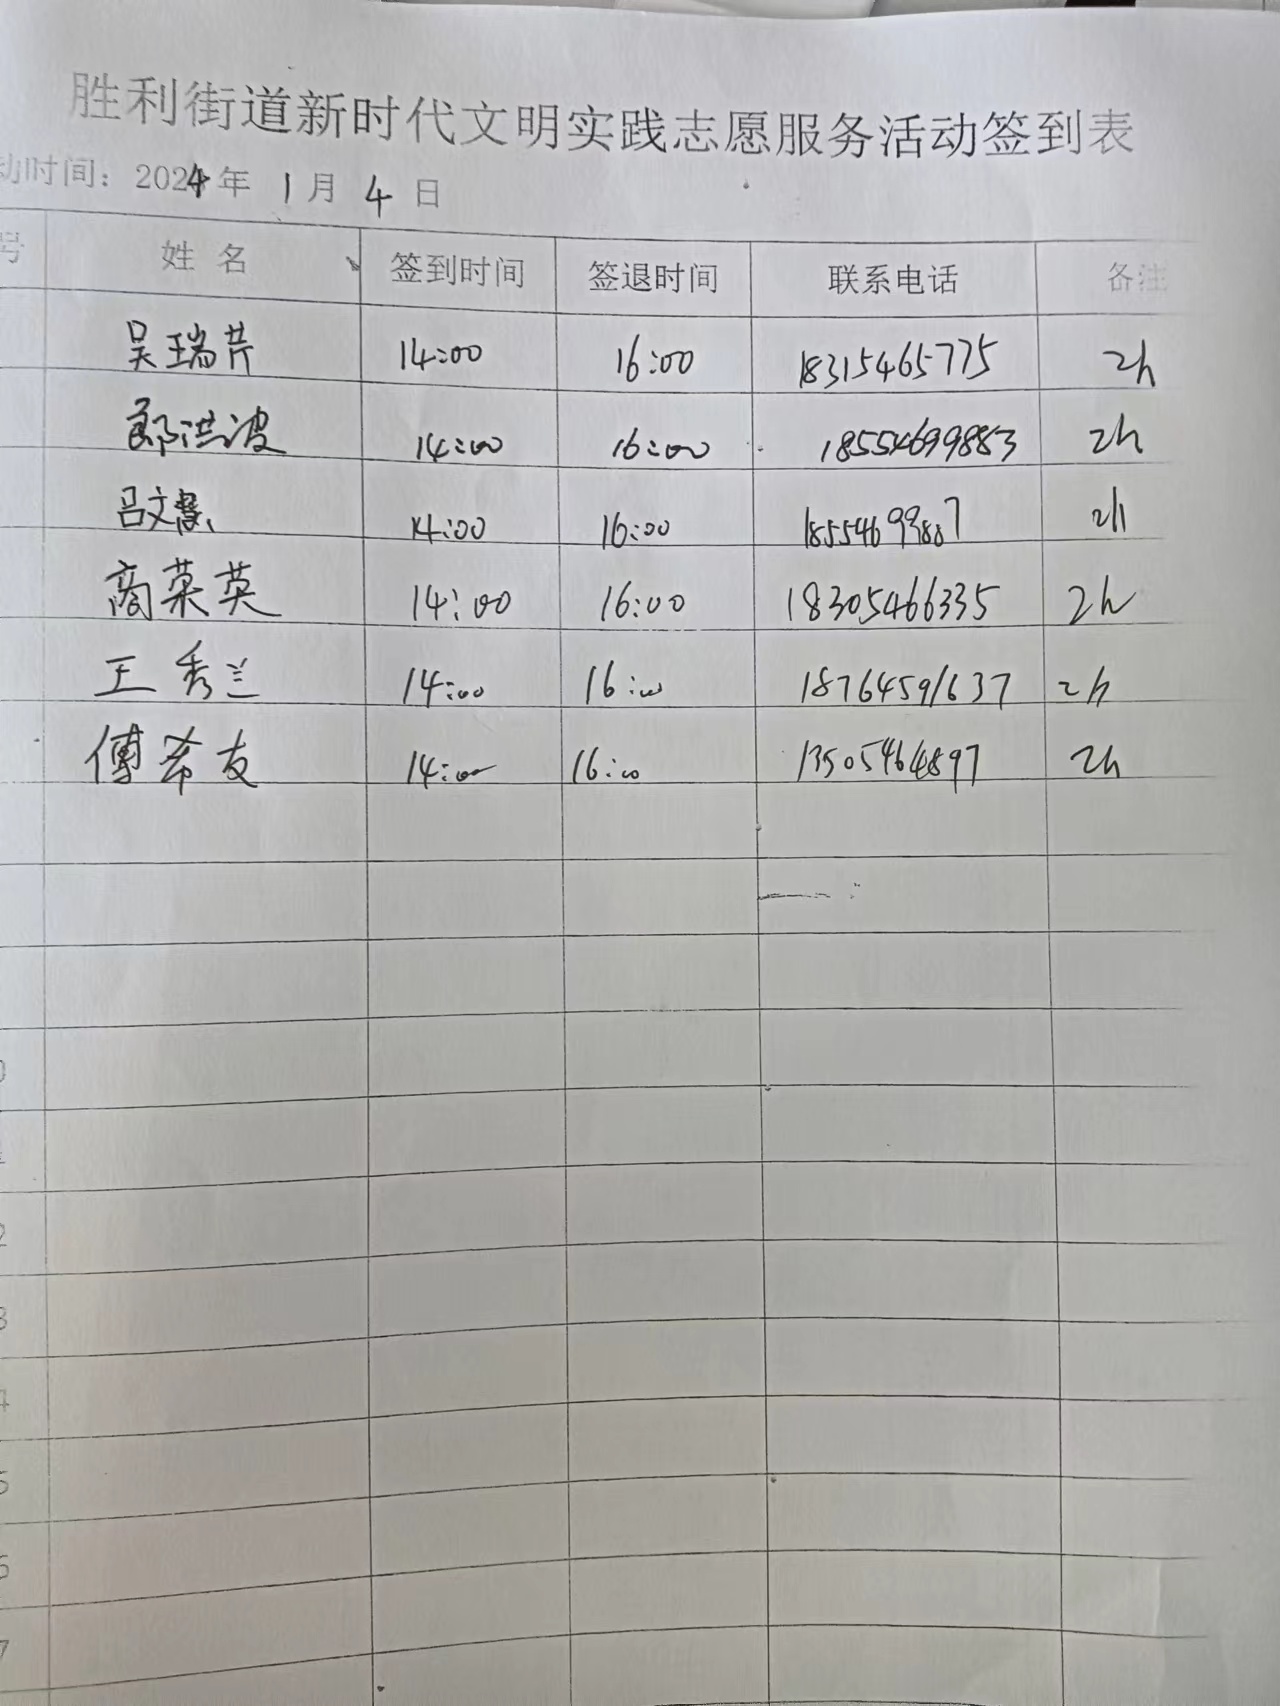 胜利街道新时代文明实践志愿服务活动签到表
动时间：2024年 1月 4 日
号 姓 名 签到时间 签退时间 联系电话 备注
吴瑞芹 14:00 16:00 18315465775 2h
郎洪波 14:00 16:00 18554699883 2h
吕文慧 14:00 16:00 18554699887 2h
商菜英 14:00 16:00 18305466335 2h
王秀兰 14:00 16:00 18764591637 2h
傅希友 14:00 16:00 13505464897 2h
0
1
2
3
4
5
6
7